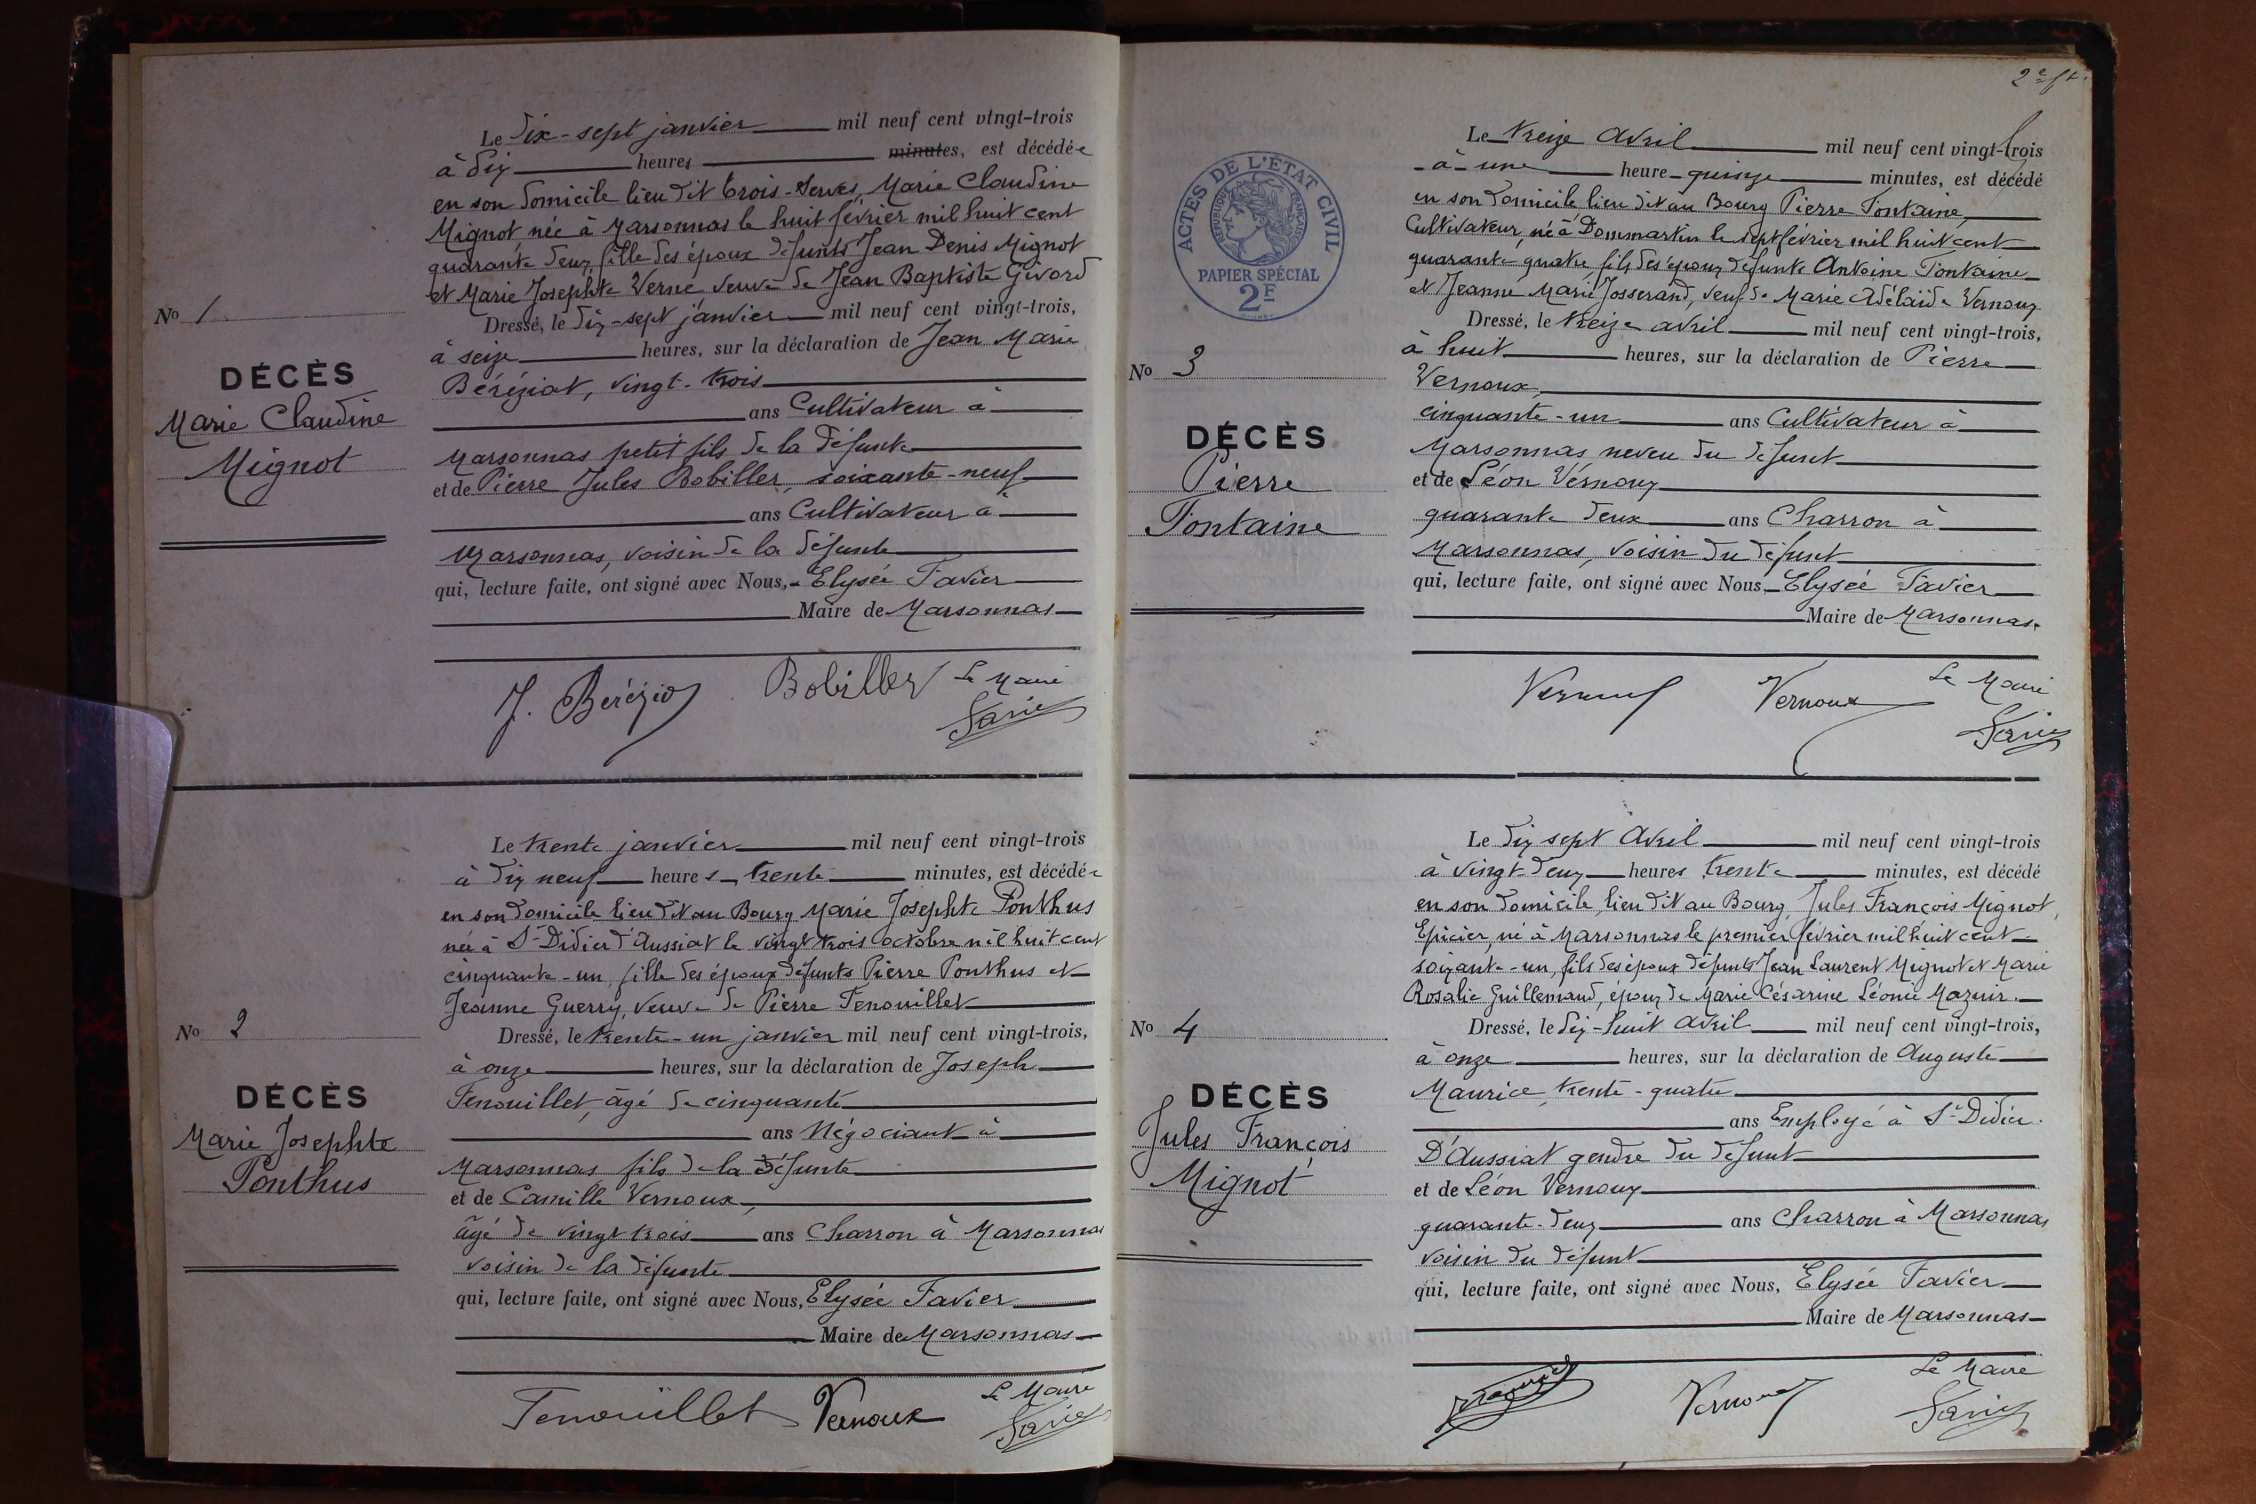 Le dix-sept janvier mil neuf cent vingt-trois
à dix heures minutes, est décédée
en son domicile lieu dit trois-Serves, Marie Claudine
Mignot née à Marsonnas le huit février mil huit cent
quarante deux, fille des époux défunts Jean Denis Mignot
et Marie Josephte Verne veuve de Jean Baptiste Givord
No 1
Dressé, le dix-sept janvier mil neuf cent vingt-trois,
à seize heures, sur la déclaration de Jean Marie
DÉCÈS
Béréziat, vingt-trois
Marie Claudine
ans Cultivateur à
Mignot
Marsonnas petit fils de la défunte
et de Pierre Jules Bobiller, soixante-neuf
ans Cultivateur à
Marsonnas, voisin de la défunte
qui, lecture faite, ont signé avec Nous, Elysée Favier
Maire de Marsonnas
J. Beréziat Bobiller Le Maire
Favier
Le trente janvier mil neuf cent vingt-trois
à dix neuf heures trente minutes, est décédée
en son domicile lieu dit au Bourg Marie Josephte Ponthus
née à St Didier d'Aussiat le vingt trois octobre mil huit cent
cinquante-un, fille des époux défunts Pierre Ponthus et
Jeanne Guerry, veuve de Pierre Fenouillet
No 2
Dressé, le trente-un janvier mil neuf cent vingt-trois,
à onze heures, sur la déclaration de Joseph
DÉCÈS
Fenouillet, âgé de cinquante
Marie Josephte
ans Négociant à
Ponthus
Marsonnas fils de la défunte
et de Camille Vernoux,
âgé de vingt trois ans Charron à Marsonnas
voisin de la défunte
qui, lecture faite, ont signé avec Nous, Elysée Favier
Maire de Marsonnas
Fenouillet Vernoux Le Maire
Favier
2e ft.
ACTES DE L'ÉTAT CIVIL
RÉPUBLIQUE FRANÇAISE
PAPIER SPÉCIAL
2F
Le treize avril mil neuf cent vingt-trois
à une heure quinze minutes, est décédé
en son domicile lieu dit au Bourg Pierre Fontaine,
Cultivateur, né à Dommartin le sept février mil huit cent
quarante quatre, fils des époux défunts Antoine Fontaine
et Jeanne Marie Josserand, veuf de Marie Adélaïde Vernoux
Dressé, le treize avril mil neuf cent vingt-trois,
No 3
à huit heures, sur la déclaration de Pierre
Vernoux,
DÉCÈS
cinquante-un ans Cultivateur à
Marsonnas neveu du défunt
Pierre
et de Léon Vernoux
Fontaine
quarante deux ans Charron à
Marsonnas, voisin du défunt
qui, lecture faite, ont signé avec Nous, Elysée Favier
Maire de Marsonnas
Vernoux Vernoux Le Maire
Favier
Le dix sept Avril mil neuf cent vingt-trois
à vingt-deux heures trente minutes, est décédé
en son domicile, lieu dit au Bourg, Jules François Mignot,
Epicier, né à Marsonnas le premier février mil huit cent
soixante-un, fils des époux défunts Jean Laurent Mignot et Marie
Rosalie Guillemaud, époux de Marie Césarine Léonie Mazuir.
No 4
Dressé, le dix-huit avril mil neuf cent vingt-trois,
à onze heures, sur la déclaration de Auguste
DÉCÈS
Maurice, trente-quatre
Jules François
ans Employé à St Didier
D'Aussiat gendre du défunt
Mignot
et de Léon Vernoux
quarante-deux ans Charron à Marsonnas
voisin du défunt
qui, lecture faite, ont signé avec Nous, Elysée Favier
Maire de Marsonnas
Vernoux Le Maire
Favier